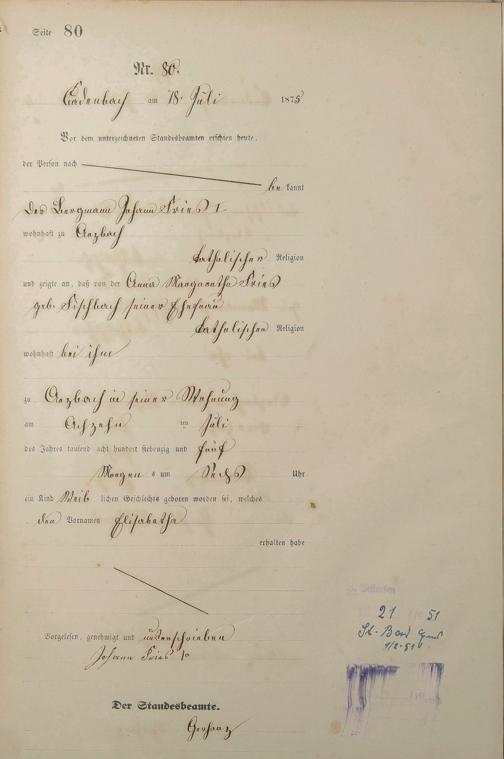 Seite 80
Nr. 80.
Cadenbach am 18. Juli 1875
Vor dem unterzeichneten Standesbeamten erschien heute,
der Person nach
be kannt
Der Bergmann Johann Fries 1.
wohnhaft zu Arzbach
katholischer Religion
und zeigte an, daß von der Anna Margaretha Fries
geb. Fischbach seiner Ehefrau
katholischer Religion
wohnhaft bei ihm
zu Arzbach in seiner Wohnung
am Achzehn ten Juli
des Jahres tausend acht hundert siebenzig und fünf
Morgen s um Sechs Uhr
ein Kind Weib lichen Geschlechts geboren worden sei, welches
den Vornamen Elisabetha
erhalten habe
Vorgelesen, genehmigt und unterschrieben
Johann Fries 1r
Der Standesbeamte.
21 51
1/2. 51